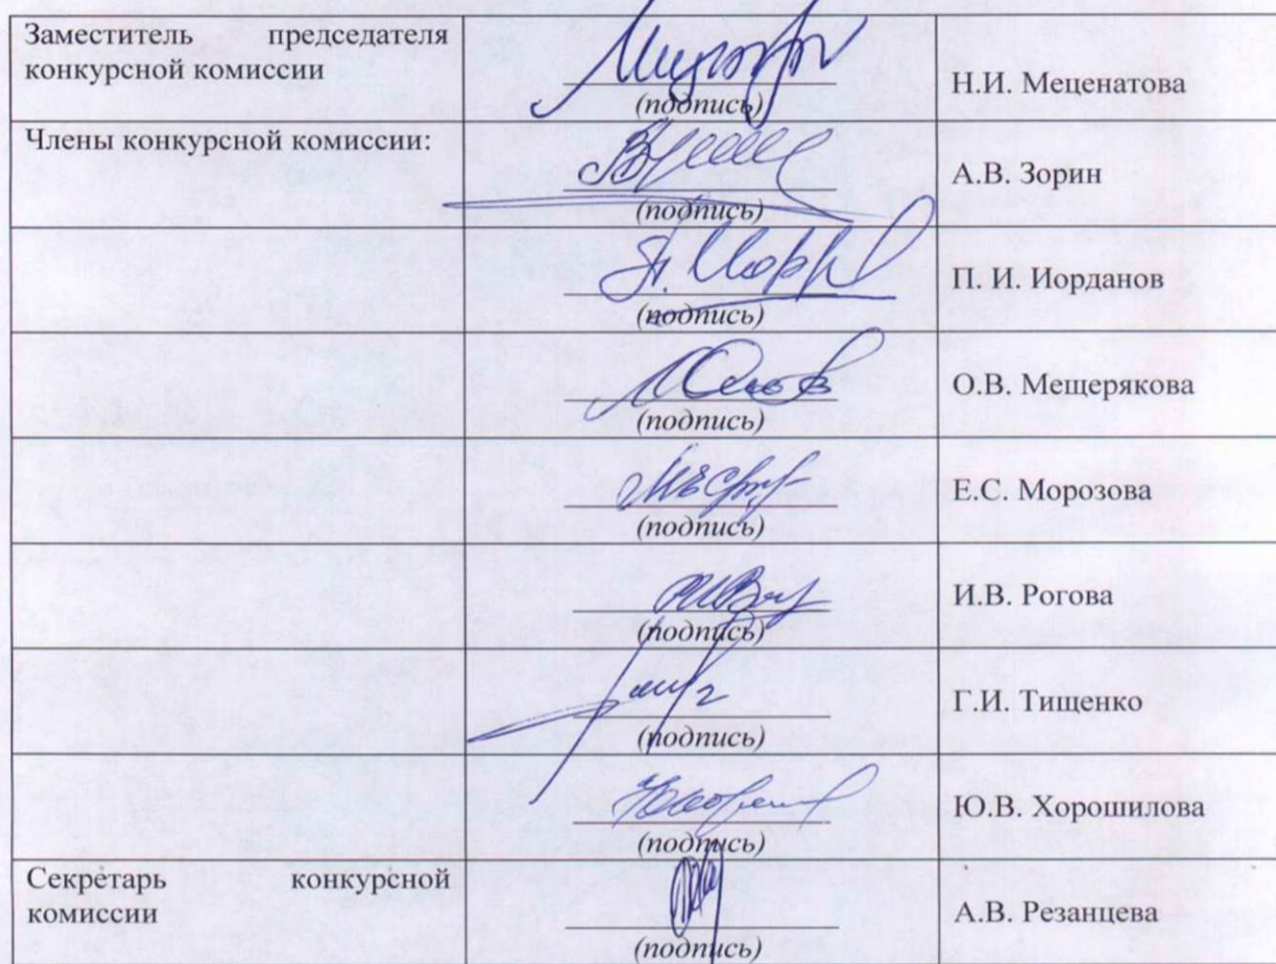 Заместитель председателя
конкурсной комиссии
(подпись)
Н.И. Меценатова
Члены конкурсной комиссии:
(подпись)
А.В. Зорин
(подпись)
П. И. Иорданов
(подпись)
О.В. Мещерякова
(подпись)
Е.С. Морозова
(подпись)
И.В. Рогова
(подпись)
Г.И. Тищенко
(подпись)
Ю.В. Хорошилова
Секретарь конкурсной
комиссии
(подпись)
А.В. Резанцева